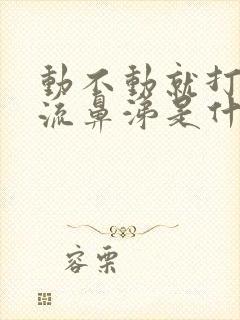 動不動就打
流鼻涕是什
容栗